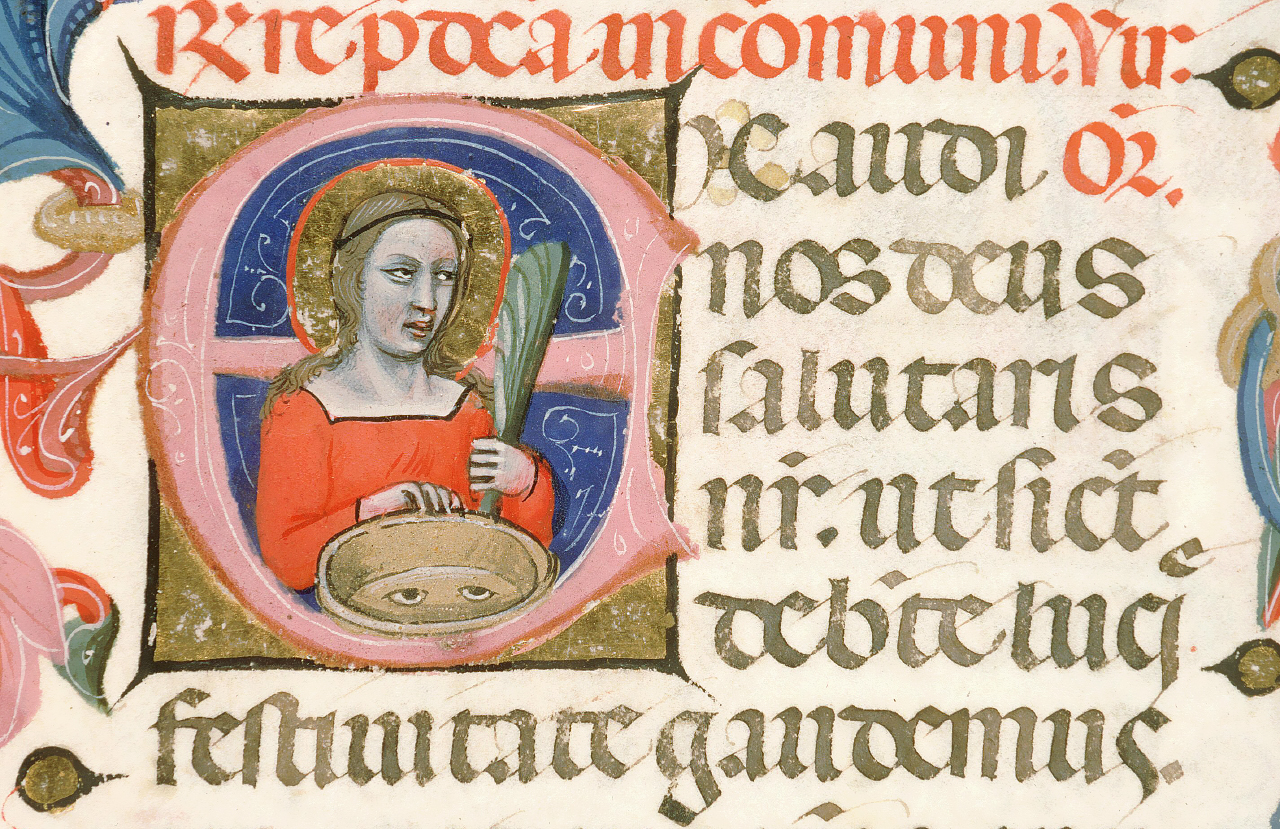 R̃ rep̱ dc̄a in cōmuni. Vir.
Exaudi Or̃.
nos deus
salutaris
nr̃. ut sic̃ut
de b̃te lucie
festiuitate gaudemus.